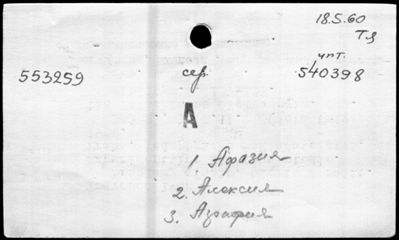 18.5.60
Тя
чпт.
553259 сер. 540398
А
1. Афазия
2. Алексия
3. Аграфия